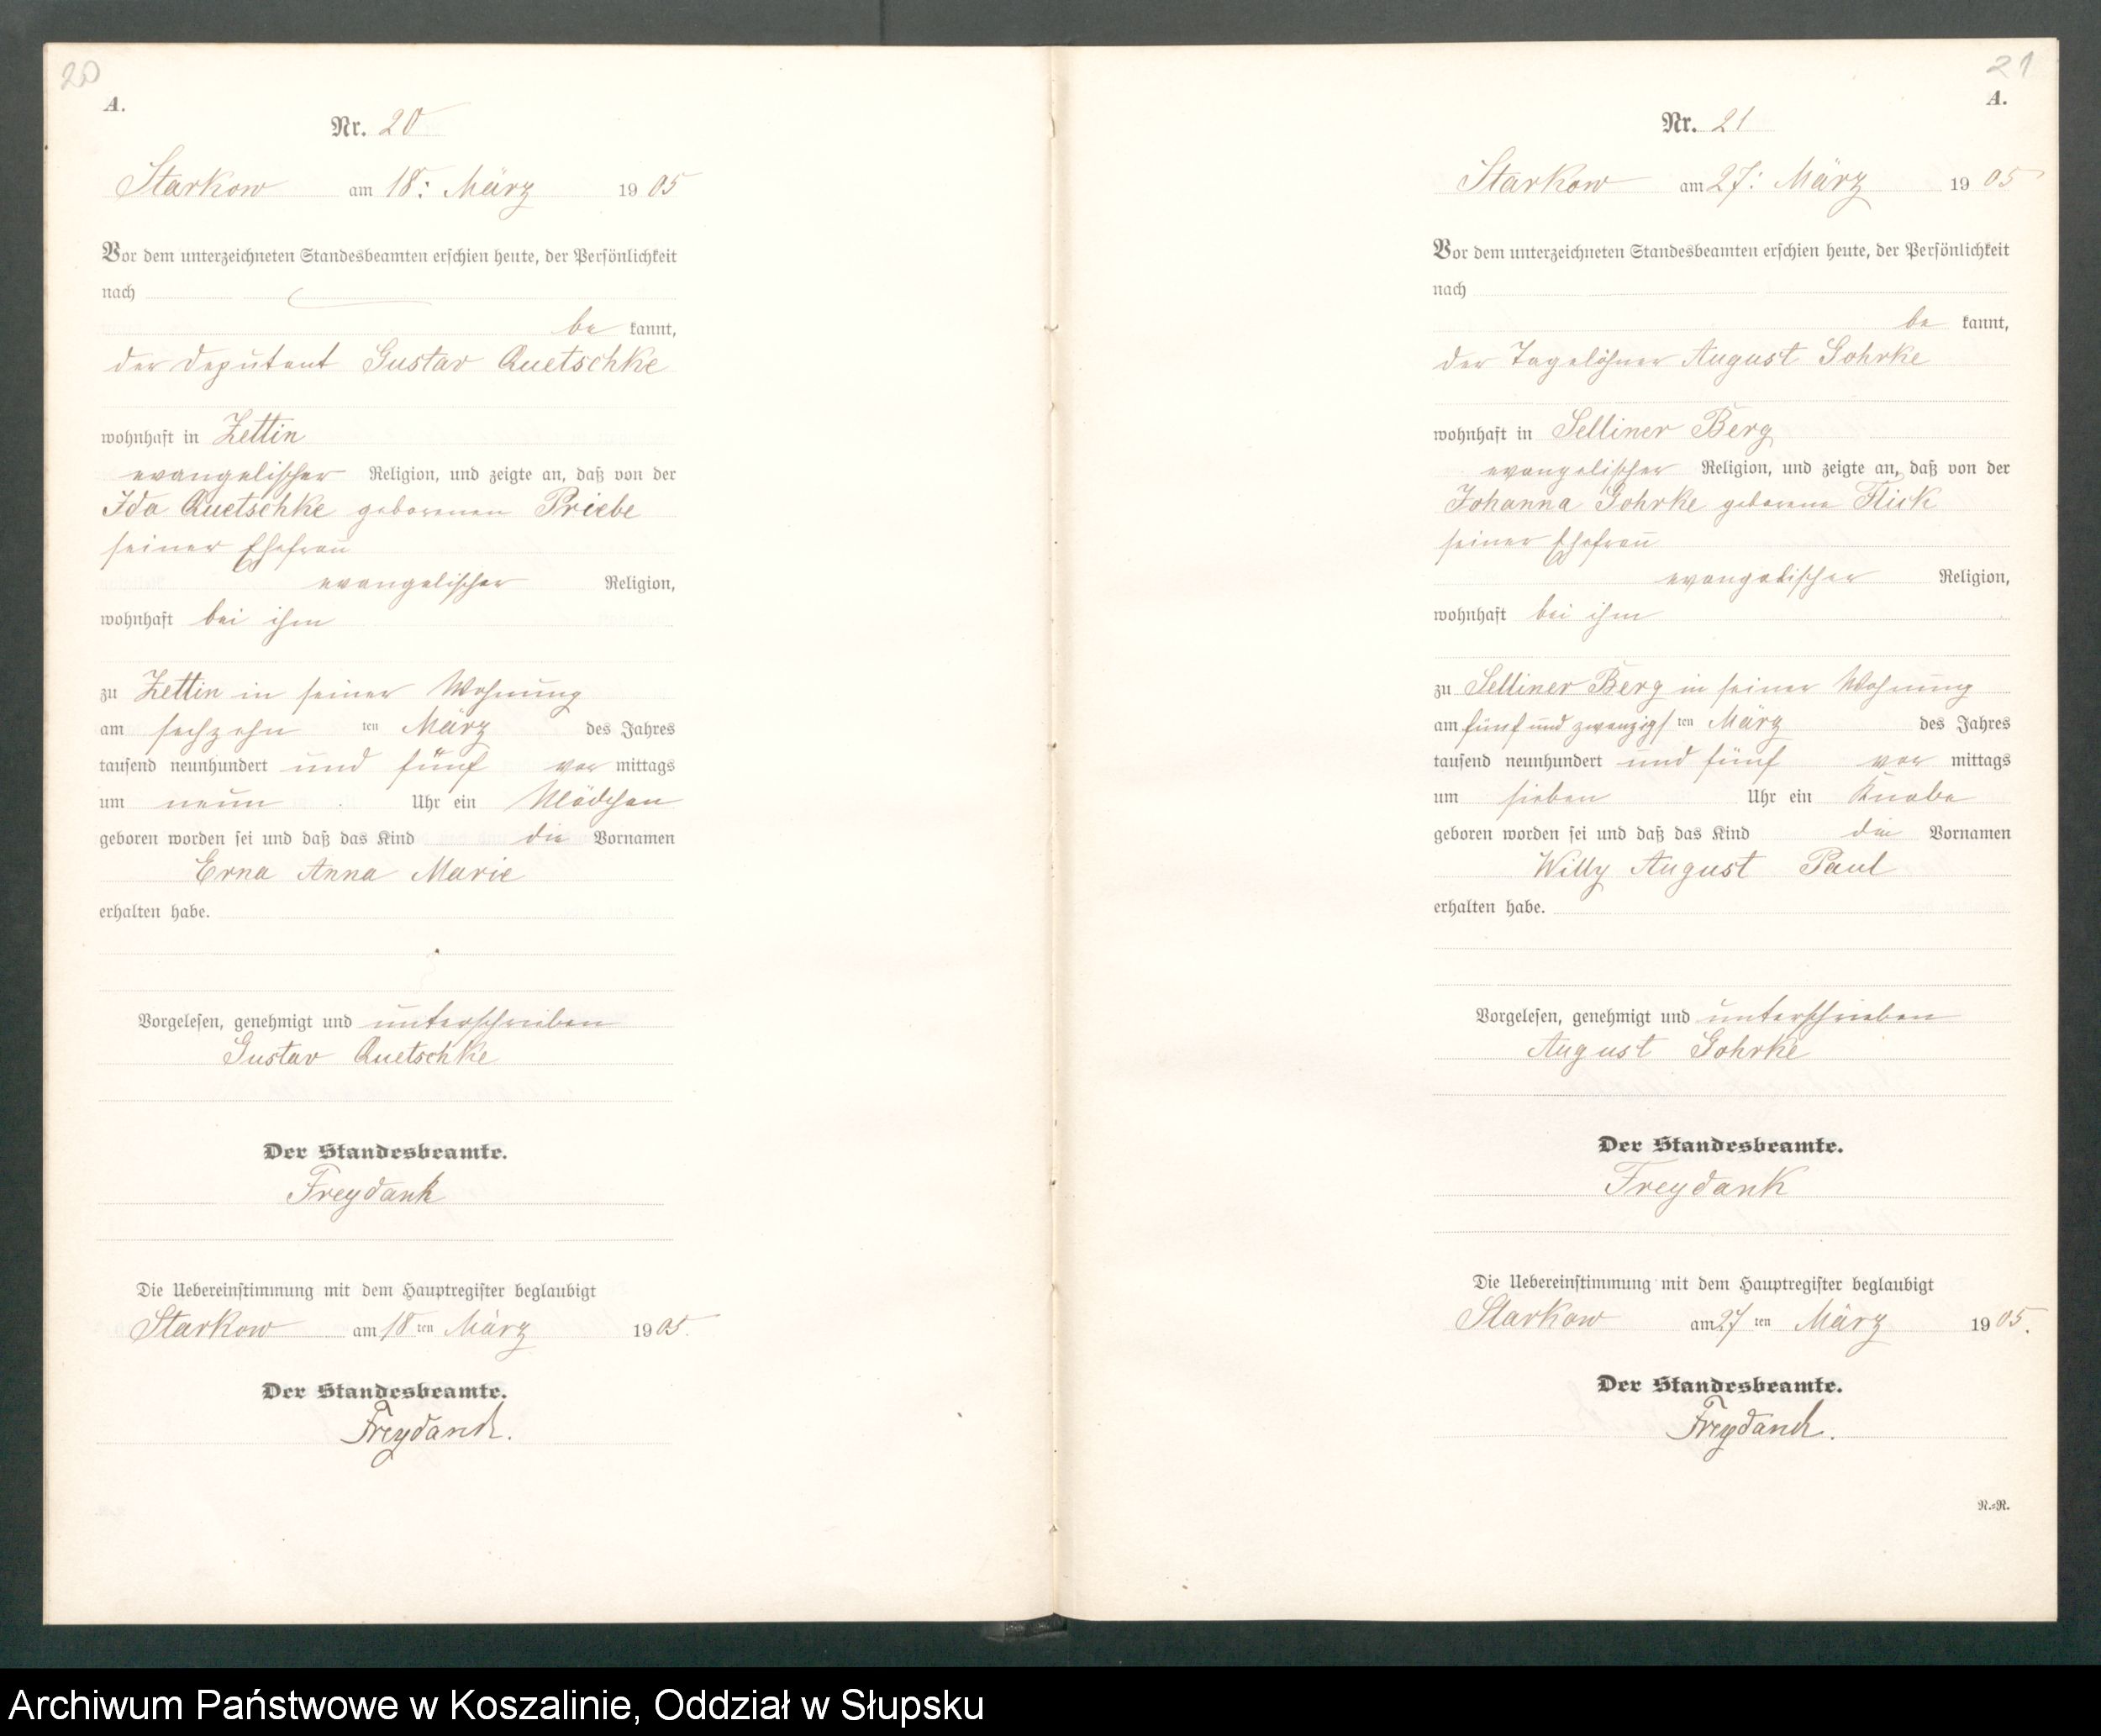 20
A.
Nr. 20
Starkow am 18: März 1905
Vor dem unterzeichneten Standesbeamten erschien heute, der Persönlichkeit
nach
be kannt,
der Deputant Gustav Quetschke
wohnhaft in Zettin
evangelischer Religion, und zeigte an, daß von der
Ida Quetschke geborenen Priebe
seiner Ehefrau
evangelischer Religion,
wohnhaft bei ihm
zu Zettin in seiner Wohnung
am sechzehn ten März des Jahres
tausend neunhundert und fünf vor mittags
um neun Uhr ein Mädchen
geboren worden sei und daß das Kind die Vornamen
Erna Anna Marie
erhalten habe.
Vorgelesen, genehmigt und unterschrieben
Gustav Quetschke
Der Standesbeamte.
Freydank
Die Uebereinstimmung mit dem Hauptregister beglaubigt
Starkow am 18 ten März 1905.
Der Standesbeamte.
Freydank.
21
A.
Nr. 21
Starkow am 27: März 1905
Vor dem unterzeichneten Standesbeamten erschien heute, der Persönlichkeit
nach
be kannt,
der Tagelöhner August Gohrke
wohnhaft in Selliner Berg
evangelischer Religion, und zeigte an, daß von der
Johanna Gohrke geborene Flick
seiner Ehefrau
evangelischer Religion,
wohnhaft bei ihm
zu Selliner Berg in seiner Wohnung
am fünf und zwanzigs ten März des Jahres
tausend neunhundert und fünf vor mittags
um sieben Uhr ein Knabe
geboren worden sei und daß das Kind die Vornamen
Willy August Paul
erhalten habe.
Vorgelesen, genehmigt und unterschrieben
August Gohrke
Der Standesbeamte.
Freydank
Die Uebereinstimmung mit dem Hauptregister beglaubigt
Starkow am 27 ten März 1905.
Der Standesbeamte.
Freydank.
R.=R.
Archiwum Państwowe w Koszalinie, Oddział w Słupsku